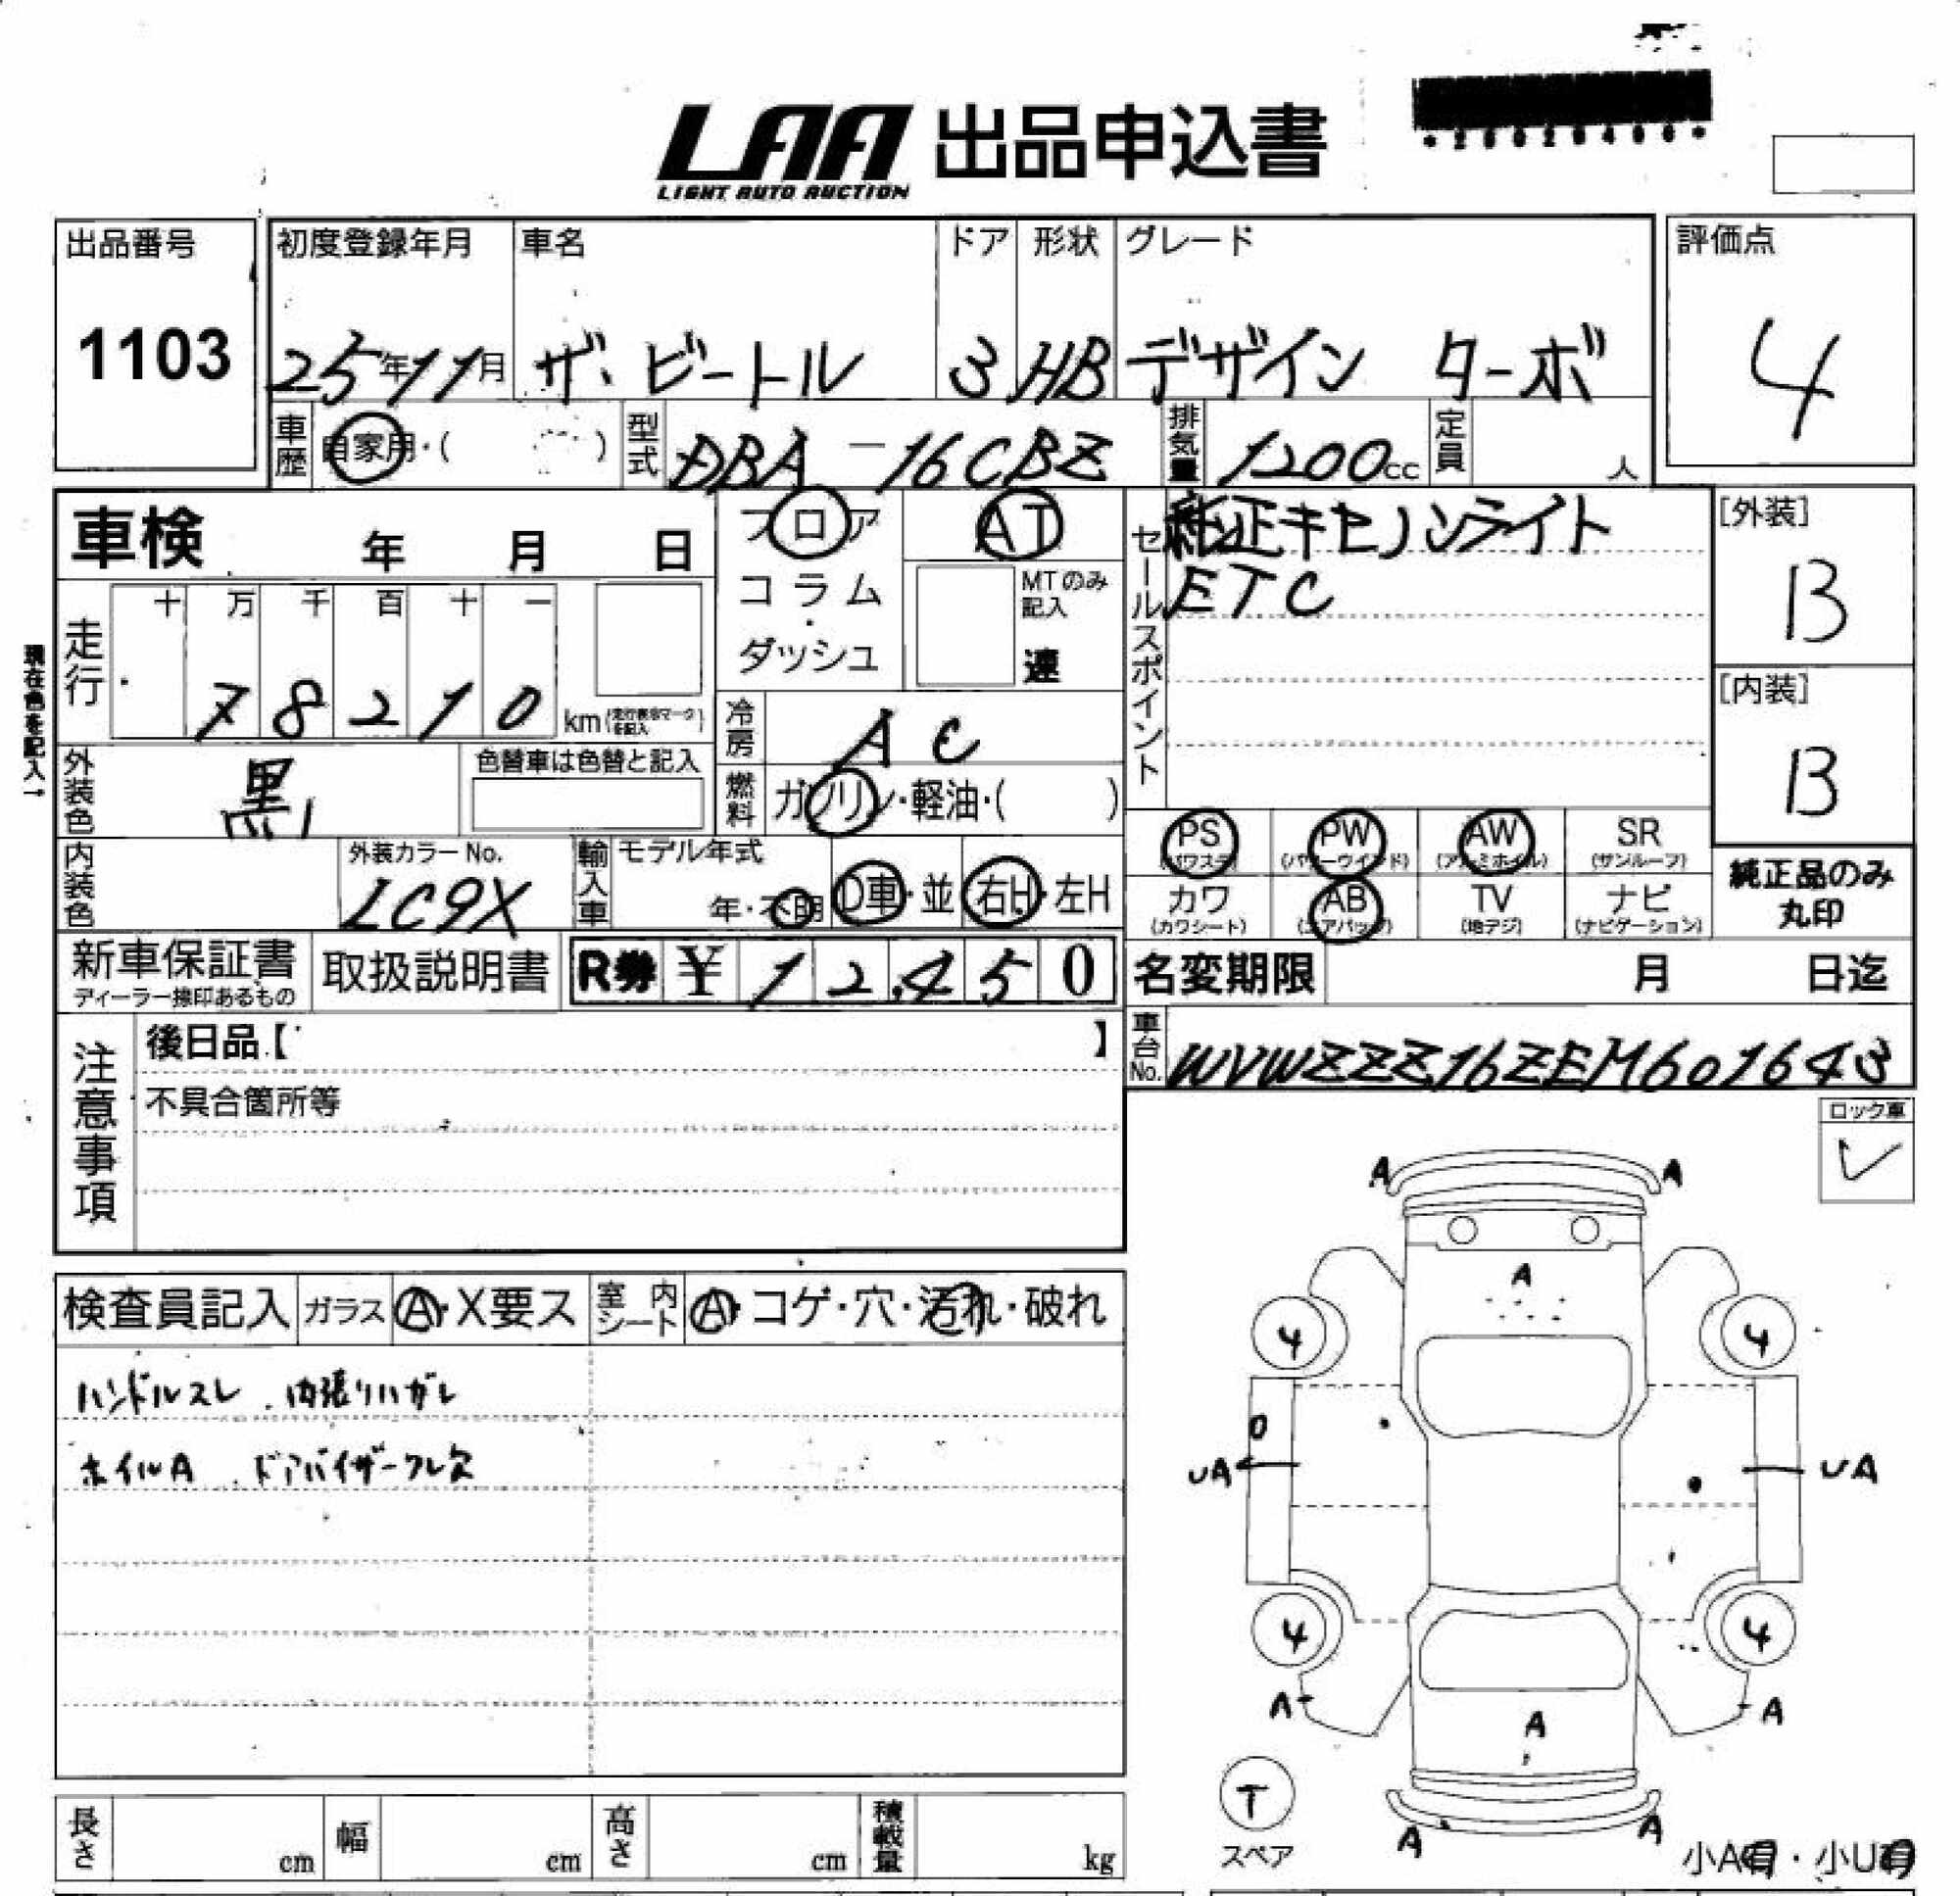 LAA 出品申込書
LIGHT AUTO AUCTION
出品番号
1103
初度登録年月
25年11月
車名
ザ・ビートル
ドア
3
形状
HB
グレード
デザイン ターボ
評価点
4
車歴
自家用・( )
型式
DBA-16CBZ
排気量
1200cc
定員
人
車検 年 月 日
フロア
コラム
・
ダッシュ
AT
MTのみ記入
速
セールスポイント
純正キセノンライト
ETC
[外装]
B
[内装]
B
現在色を記入→
走行
十 万 千 百 十 一
7 8 2 1 0 km
冷房
AC
燃料
ガソリン・軽油・( )
外装色
黒
色替車は色替と記入
内装色
外装カラーNo.
LC9X
輸入車
モデル年式
年・不明
D車・並
右H・左H
PS
(パワステ)
PW
(パワーウインド)
AW
(アルミホイル)
SR
(サンルーフ)
カワ
(カワシート)
AB
(エアバッグ)
TV
(地デジ)
ナビ
(ナビゲーション)
純正品のみ
丸印
新車保証書
ディーラー捺印あるもの
取扱説明書
R券 ¥ 12,450
名変期限 月 日迄
車台No.
WVWZZZ16ZEM601643
注意事項
後日品【 】
不具合箇所等
ロック車
✓
検査員記入
ガラス
A・X要ス
室内シート
A・コゲ・穴・汚れ・破れ
ハンドルスレ . 内張りハガレ
ホイルA . ドアバイザーワレ欠
A A
A
4 4
0
UA UA
4 4
A A
A
T
スペア
A A
小A有・小U有
長さ cm
幅 cm
高さ cm
積載量 kg